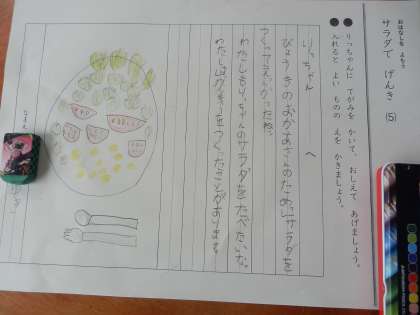 おはなしを よもう
サラダで げんき (5)
●りっちゃんに てがみを かいて、おしえて あげましょう。
●入れると よい ものの えを かきましょう。
りっちゃん へ
びょうきのおかあさんのためにサラダを
つくってえらかったね。
わたしもりっちゃんのサラダをたべたいな。
わたしは
をつくったことがあります。
なまえ